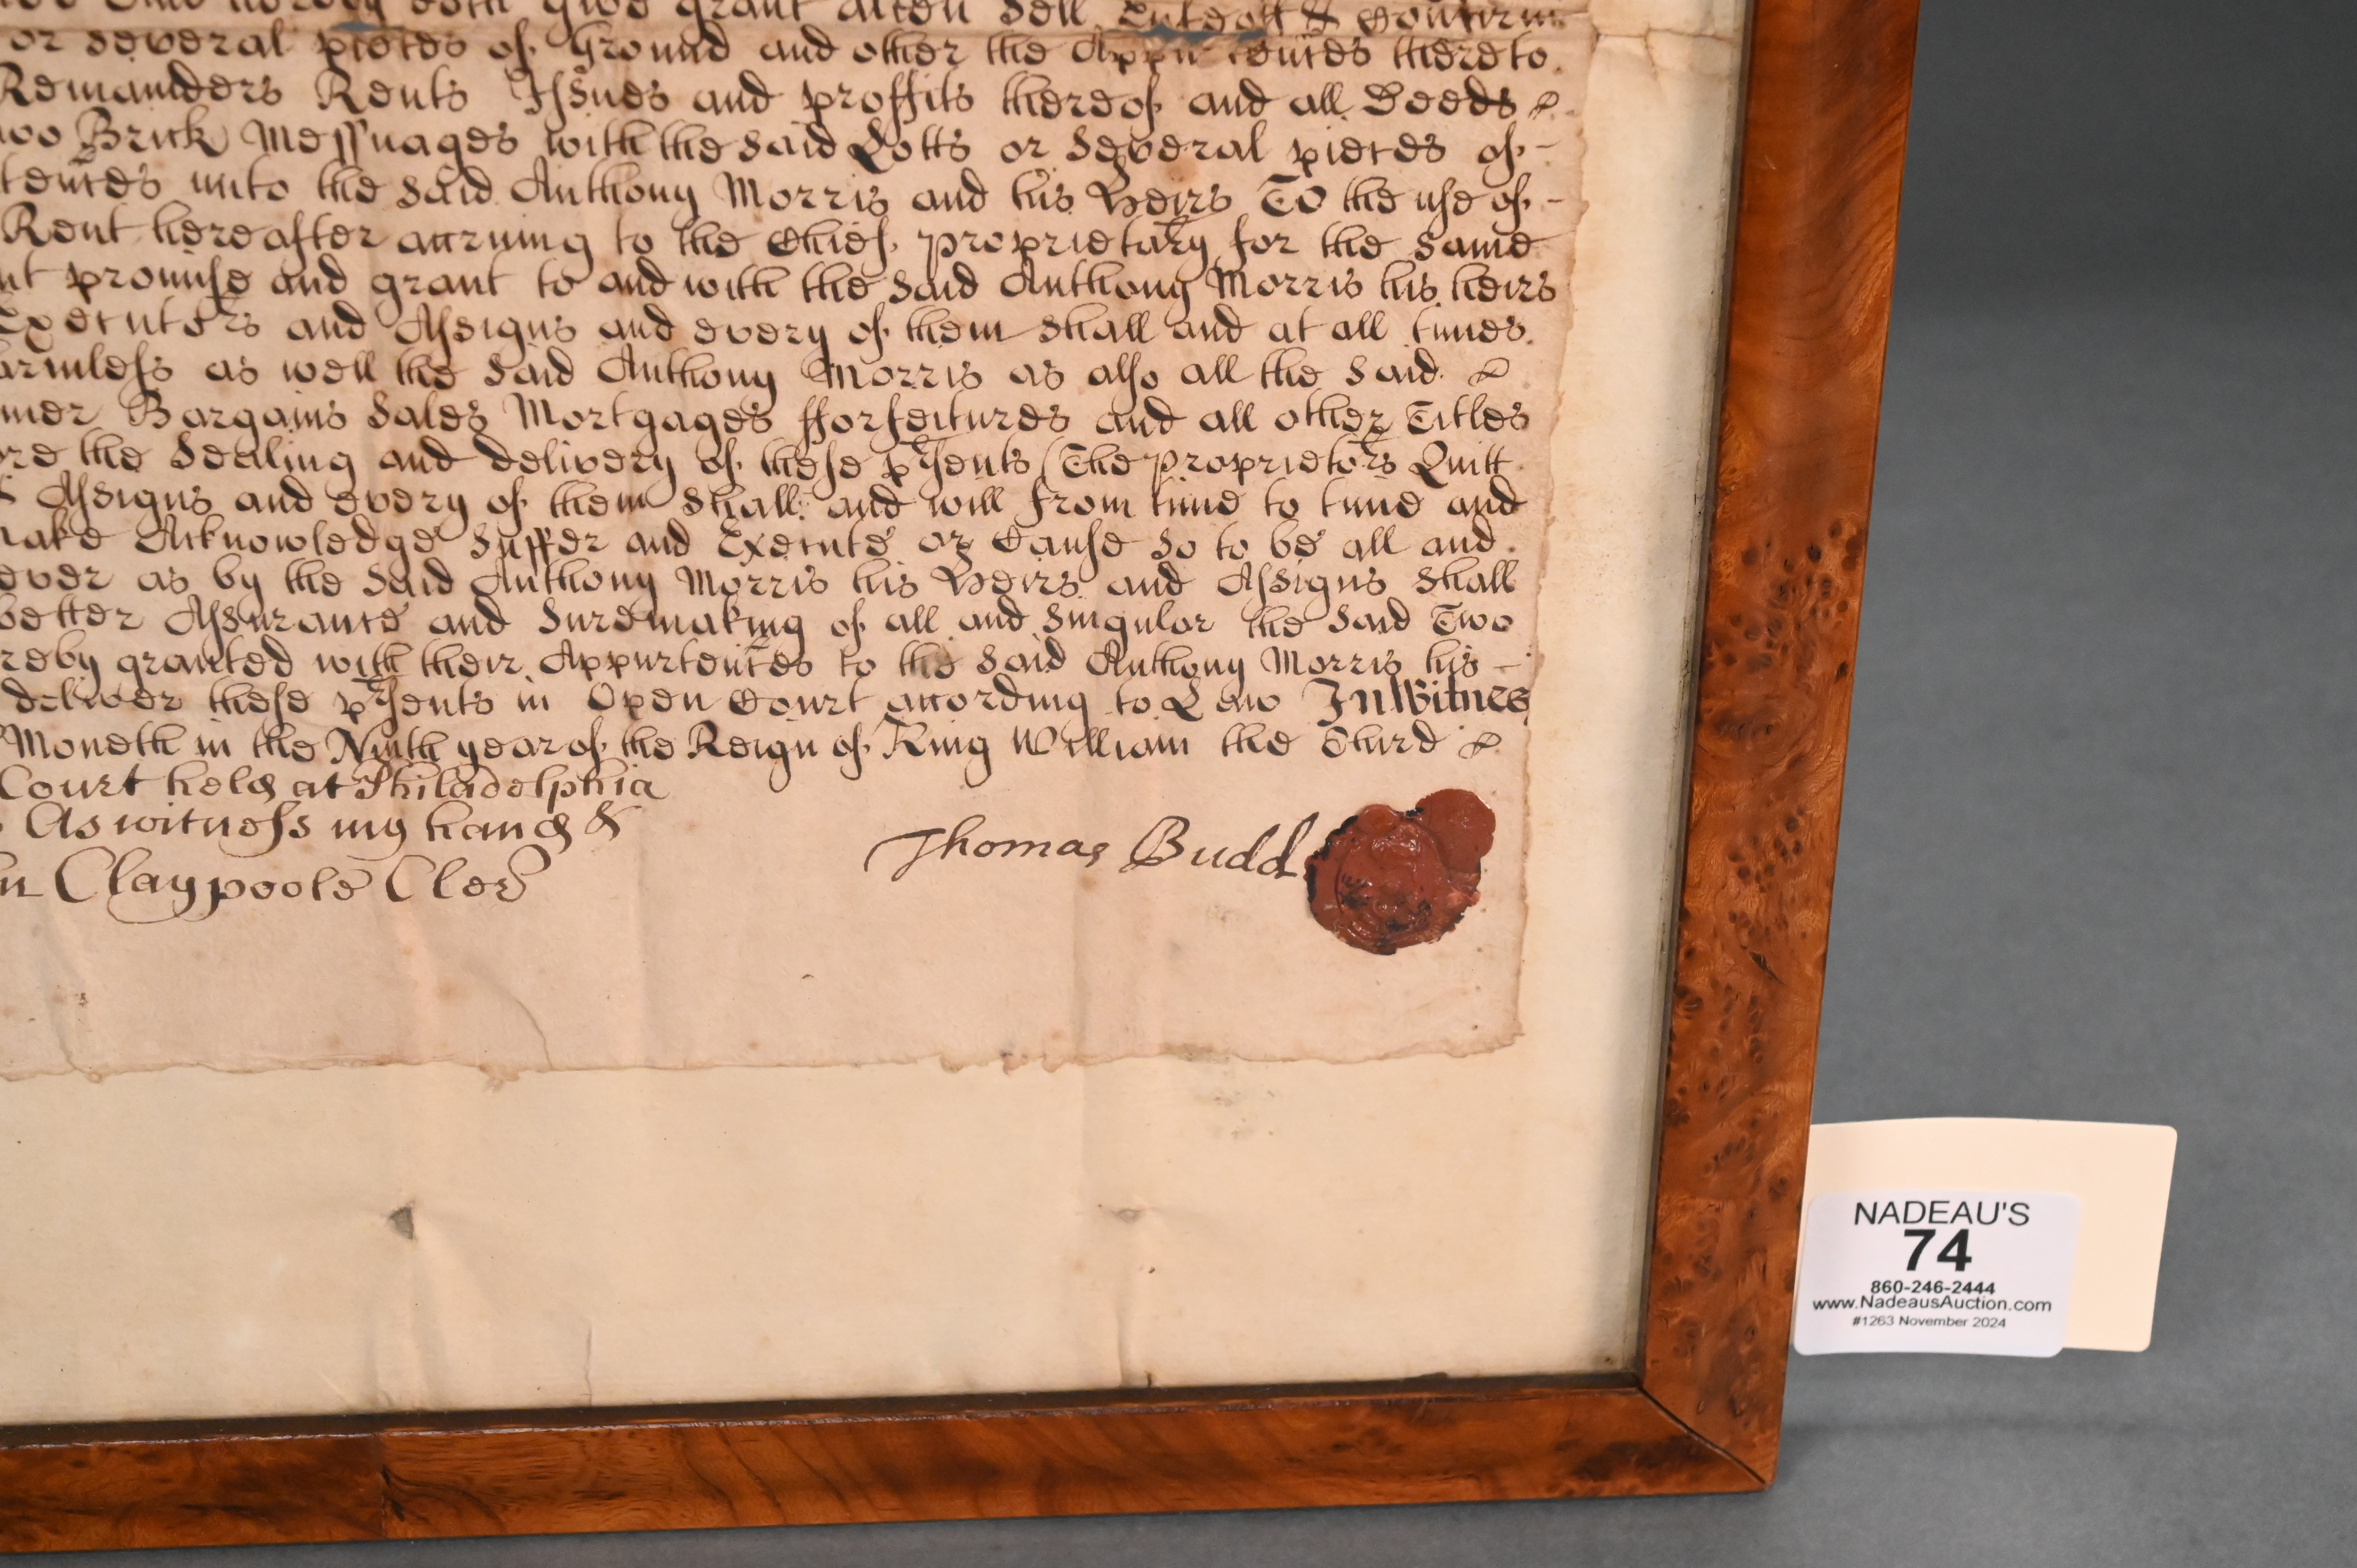 doth give grant alien sell Enfeoff & Confirm
or several pieces of Ground and other the Appurtences thereto
Remainders Rents Issues and proffits thereof and all Deeds
Brick Messuages with the said Lotts or several pieces of
tences unto the said Anthony Morris and his Heirs To the use of
Rent hereafter accruing to the Chief proprietary for the same
nt promise and grant to and with the said Anthony Morris his heirs
Executors and Assigns and every of them shall and at all times
armless as well the said Anthony Morris as also all the said
mer Bargains Sales Mortgages fforfeitures and all other Titles
re the Sealing and delivery of these psents (The proprietors Quitt
Assigns and every of them shall and will from time to time and
make Acknowledge Suffer and Execute or Cause so to be all and
ever as by the said Anthony Morris his Heirs and Assigns shall
better Assurance and Suremaking of all and Singulor the said Two
reby granted with their Appurtences to the said Anthony Morris his
deliver these psents in Open Court according to Law In Witnes
Moneth in the Ninth year of the Reign of King William the Third
Court held at Philadelphia
As witness my hand &
n Claypoole Cler
Thomas Budd
NADEAU'S
74
860-246-2444
www.NadeausAuction.com
#1263 November 2024